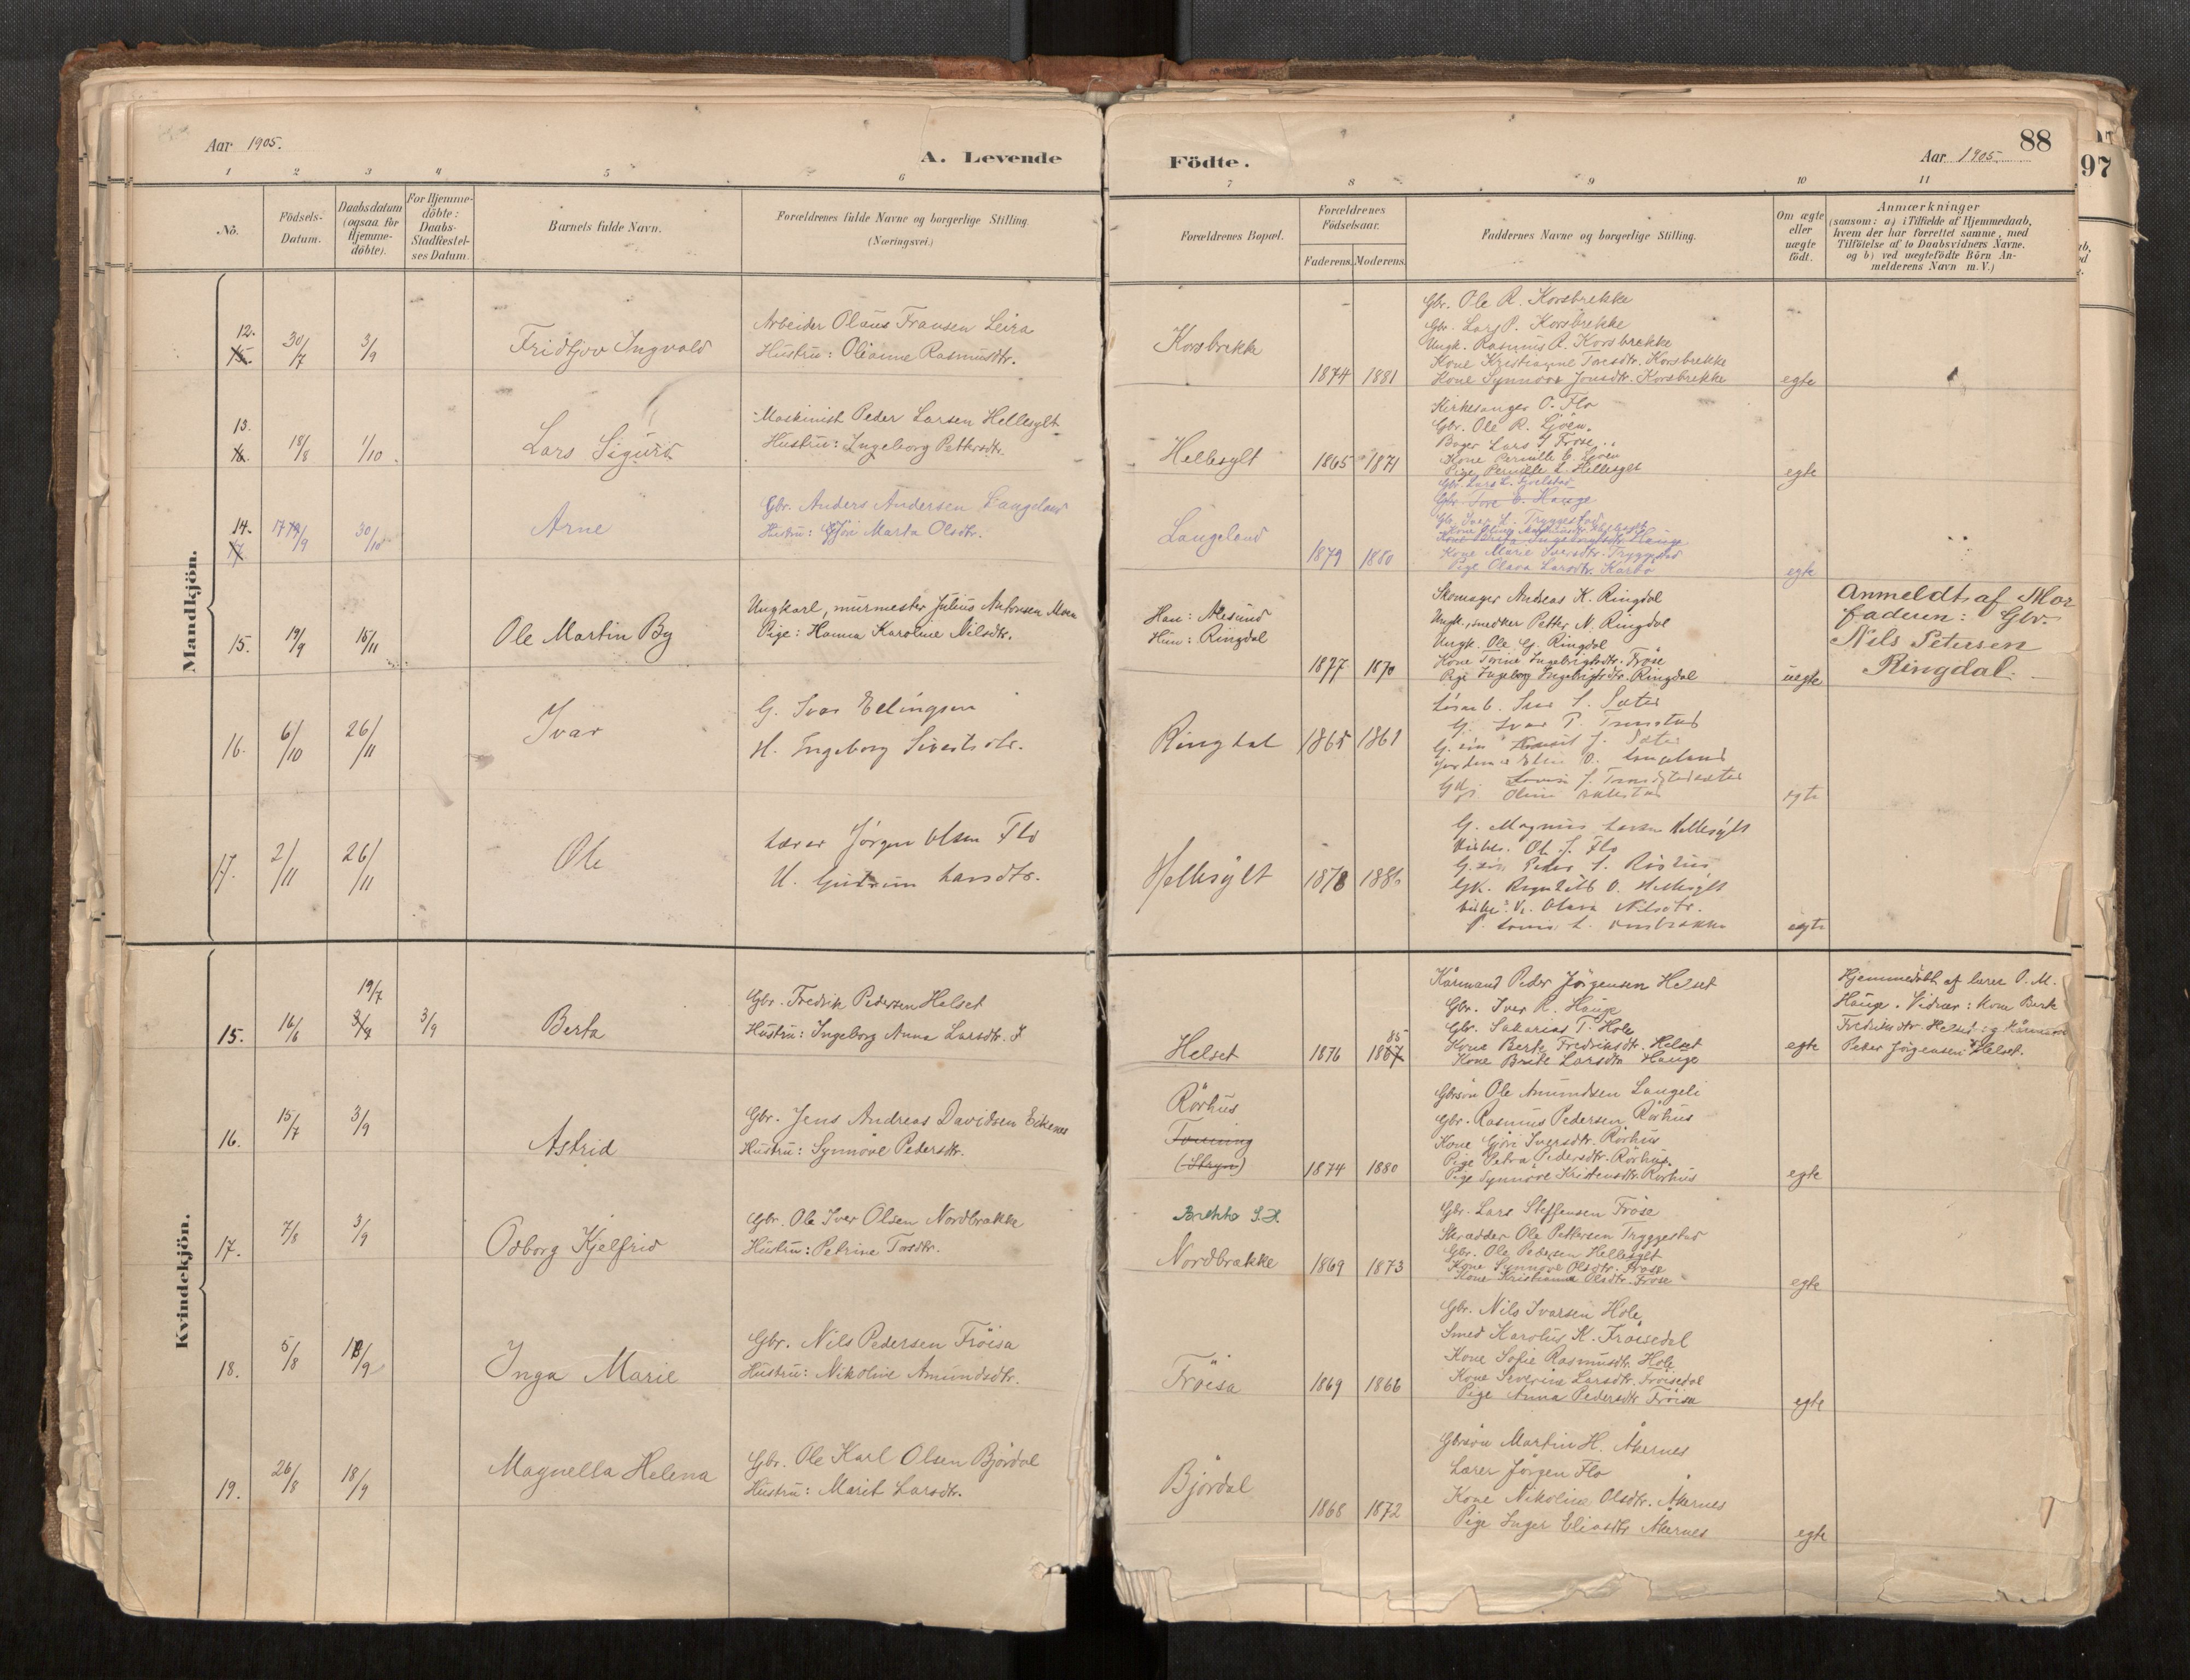 Aar 1905.
A. Levende
Födte.
Aar 1905
88
97
1 2 3 4 5 6
7 8 9 10 11
No.
Födsels-
Datum.
Daabsdatum
(ogsaa for
Hjemme-
döbte).
For Hjemme-
döbte:
Daabs-
Stadfæstel-
ses Datum.
Barnets fulde Navn.
Forældrenes fulde Navne og borgerlige Stilling.
(Næringsvei.)
Forældrenes Bopæl.
Forældrenes
Födselsaar.
Faderens. Moderens.
Faddernes Navne og borgerlige Stilling.
Om ægte
eller
uægte
födt.
Anmærkninger
(saasom: a) i Tilfælde af Hjemmedaab,
hvem der har forrettet samme, med
Tilföielse af to Daabsvidners Navne.
og b) ved uægtefödte Börn An-
melderens Navn m.V.)
Mandkjön.
12.
15.
30/7
3/9
Fridtjov Ingvald
Arbeider Olaus Fransen Leira
Hustru: Olianne Rasmusdtr.
Korsbrekke
1874 1881
Gbr. Ole R. Korsbrekke
Gbr. Lars P. Korsbrekke
Ungk. Rasmus R. Korsbrekke
Kone Kristianne Toresdtr. Korsbrekke
Kone Synnöve Jonsdtr. Korsbrekke
egte
13.
16.
18/8
1/10
Lars Sigurd
Maskinist Peder Larsen Hellesylt
Hustru: Ingeborg Pettersdtr.
Hellesylt
1865 1871
Kirkesanger O. Flo
Gbr. Ole R. Ljöen.
Bager Lars Fröse
Kone Pernille
Pige Pernille L. Hellesylt
egte
14.
17
17/9
30/10
Arne
Gbr. Anders Andersen Langeland
Hustru: Marta Olsdtr.
Langeland
1879 1880
Gbr. Lars L.
Gbr Tore E. Hauge
Gbr. Iver L. Tryggestad
Kone Marie Iversdtr. Tryggestad
Pige Olava Larsdtr. Karbö
egte
15.
19/9
15/11
Ole Martin By
Ungkarl, murmester Julius Antonsen Moen
Pige: Hanna Karoline Nilsdtr.
Han: Alesund
Hun: Ringdal
1877 1870
Skomager Andreas K. Ringdal
Ungk., snedker Petter N. Ringdal
Ungk. Ole G. Ringdal
Kone Trine Ingebrigtsdtr. Fröse
Pige Ingeborg Ingebrigtsdtr. Ringdal
uegte
Anmeldt af Mor
faderen: Gbr.
Nils Petersen
Ringdal.
16.
6/10
26/11
Ivar
G. Ivar Ellingsen
H. Ingeborg Sivertsdtr.
Ringdal
1865 1861
egte
17.
2/11
26/11
Ole
Lærer Jörgen Olsen Flo
H. Gudrun Larsdtr.
Hellesylt
1878 1886
G. Magnus Larsen Hellesylt
Ole J. Flo
Peder
Hellesylt
Olava Nilsdtr.
egte
Kvindekjön.
15.
16/6
19/7
3/9
3/9
Berta
Gbr. Fredrik Pedersen Helset
Hustru: Ingeborg Anna Larsdtr.
Helset
1876
85
1887
Kårmand Peder Jörgensen Helset
Gbr. Iver R. Hauge
Gbr. Sakarias T. Hole
Kone Berte Fredriksdtr. Helset
Kone Brite Larsdtr Hauge
egte
Hjemmedöbt af lærer O. M.
Hauge. Vidner: Kone Berte
Fredriksdtr Helset og Kårmand
Peder Jörgensen Helset.
16.
15/7
3/9
Astrid
Gbr. Jens Andreas Davidsen Eikenes
Hustru: Synnöve Pedersdtr.
Rörhus
Tonning
(Stryn)
1874 1880
Gbrsön Ole Amundsen Langeli
Gbr. Rasmus Pedersen Rörhus
Kone Gjöri Iversdtr. Rörhus
Pige Petra Pedersdtr. Rörhus.
Pige Synnöve Kristensdtr. Rörhus
egte
17.
7/8
3/9
Odborg Kjelfrid
Gbr. Ole Iver Olsen Nordbrække
Hustru: Petrine Toresdtr.
Nordbrække
1869 1873
Gbr. Lars Steffensen Fröse
Skrædder Ole Pettersen Tryggestad
Gbr. Ole Pedersen Hellesylt
Kone Synnöve Olsdtr. Fröse
Kone Kristianna Olsdtr. Fröse
egte
18.
5/8
18/9
Inga Marie
Gbr. Nils Pedersen Fröisa
Hustru: Nikoline Amundsdtr.
Fröisa
1869 1866
Gbr. Nils Ivarsen Hole
Smed Karolus K. Fröisedal
Kone Sofie Rasmusdtr. Hole
Kone Severine Larsdtr. Fröisedal
Pige Anna Pedersdtr Fröisa
egte
19.
26/8
18/9
Magnella Helena
Gbr. Ole Karl Olsen Björdal
Hustru: Marit Larsdtr.
Björdal
1868 1872
Gbrsön Martin H. Åkernes
Lærer Jörgen Flo
Kone Nikoline Olsdtr. Åkernes
Pige Inger Eliasdtr Åkernes
egte